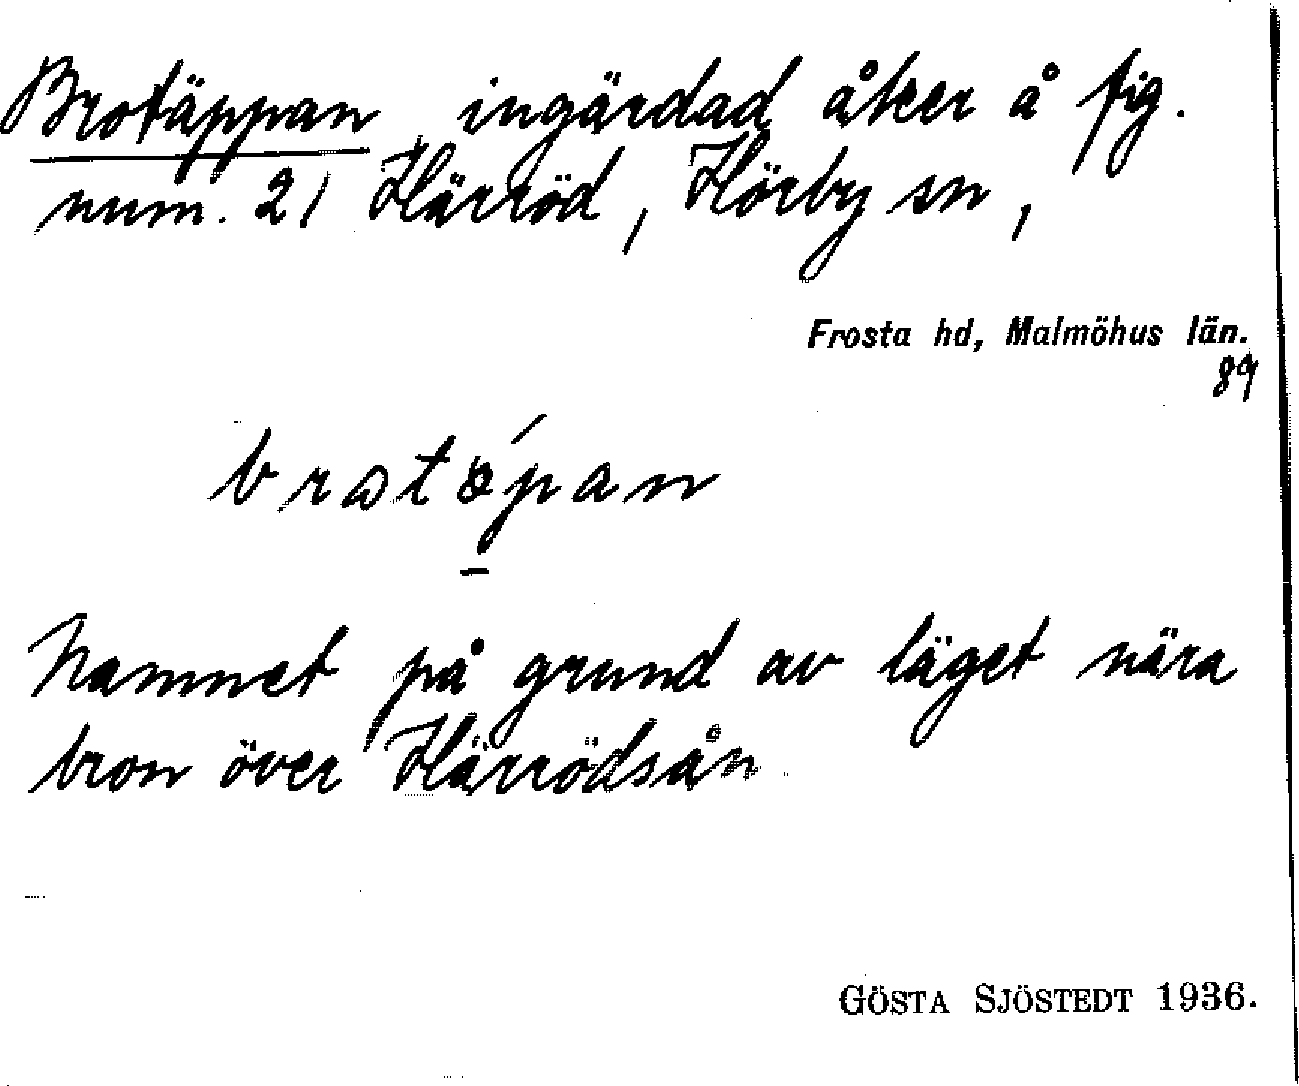 Brotäppan ingärdad åker å fig.
num. 21 Härröd, Hörby sn,
Frosta hd, Malmöhus län.
89
Namnet på grund av läget nära
bron över Härrödsån
GÖSTA SJÖSTEDT 1936.